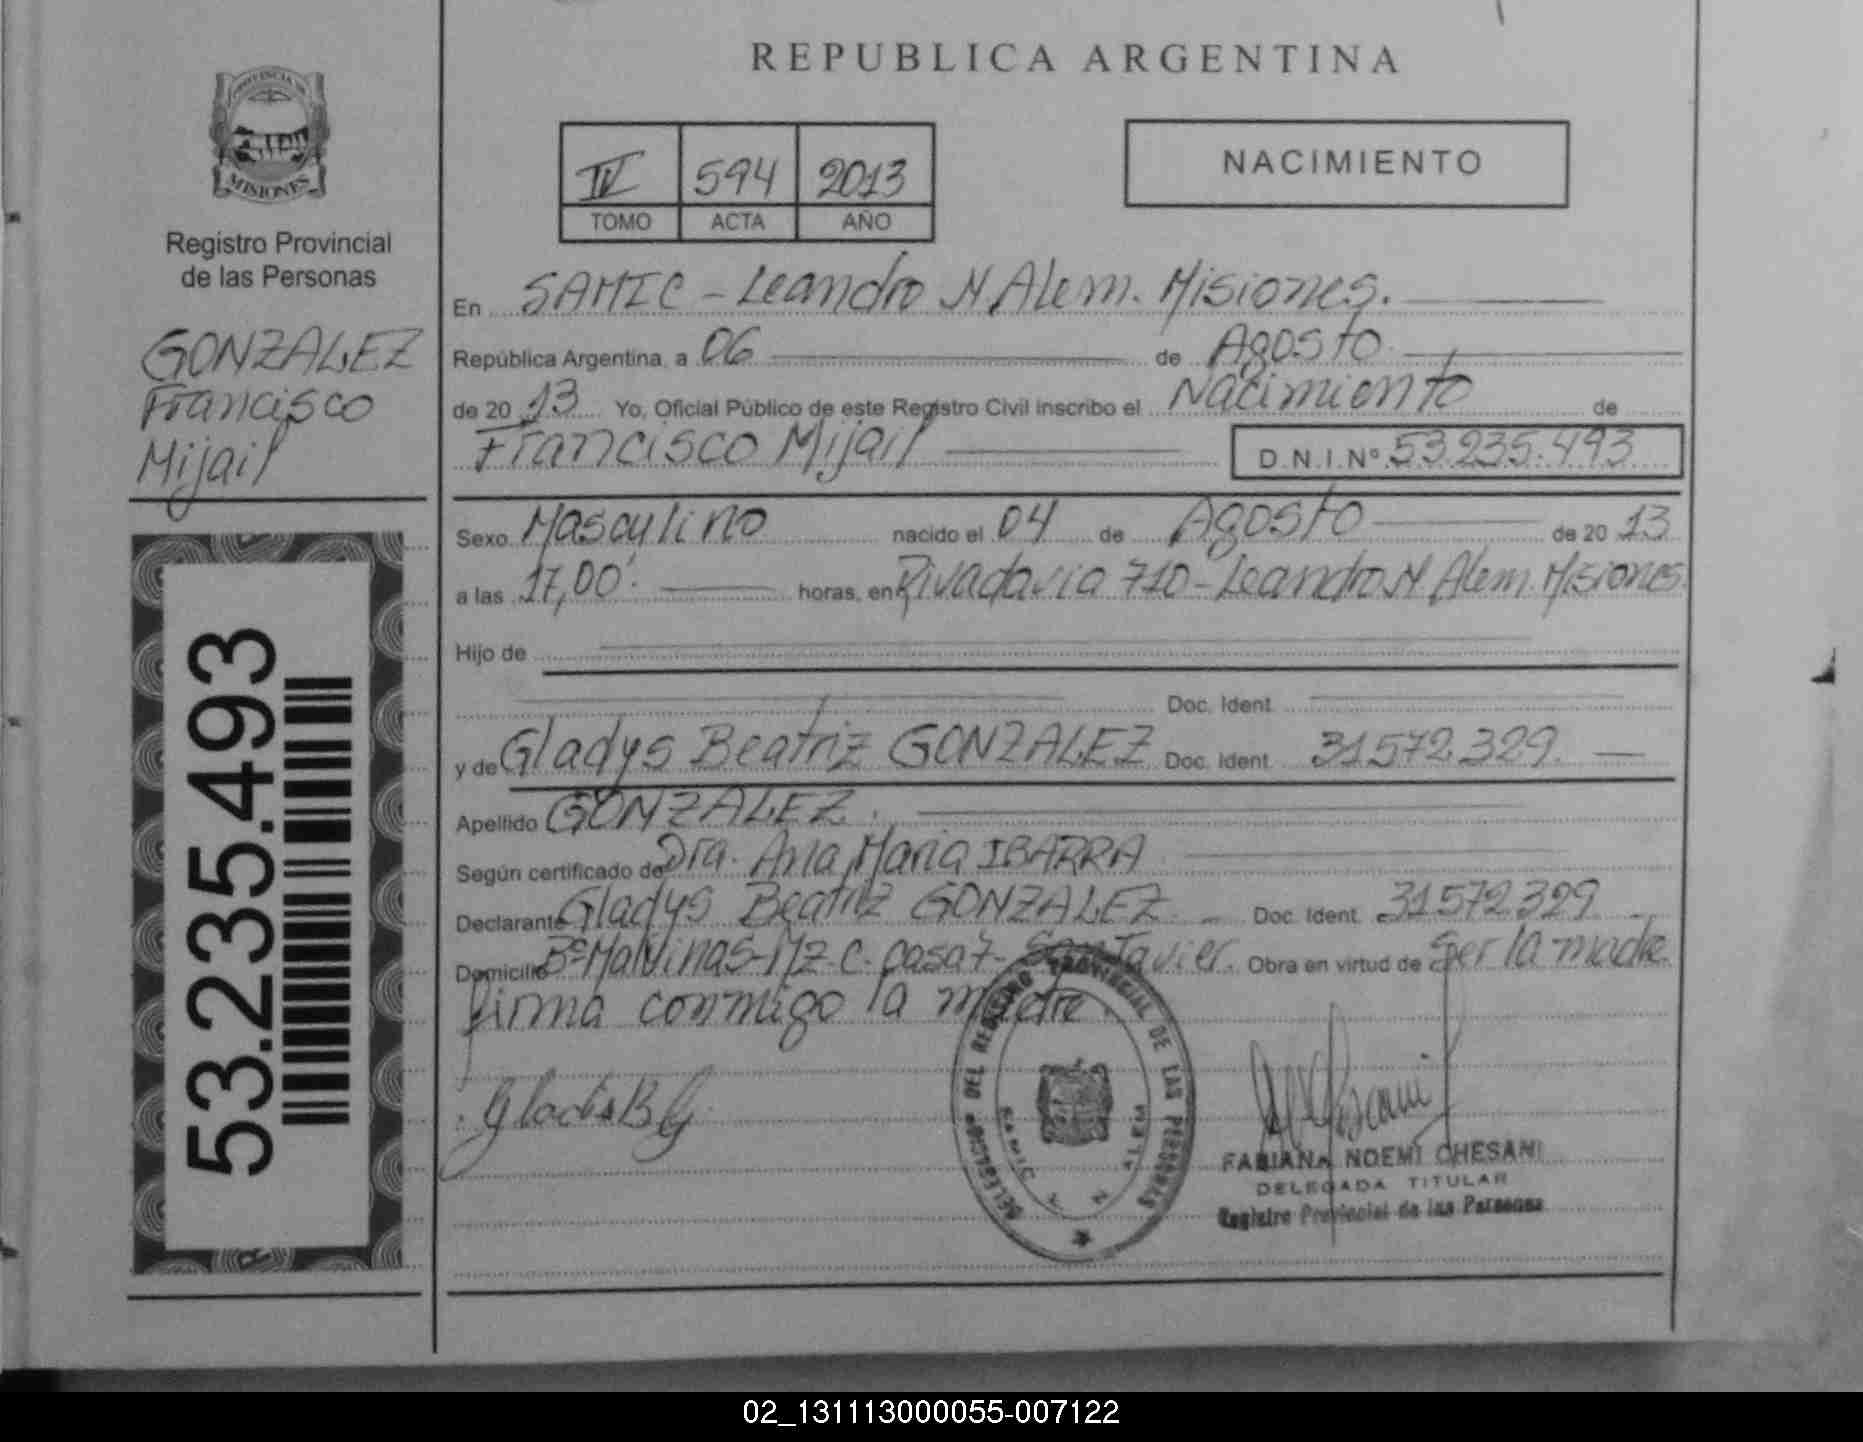 PROVINCIA DE
MISIONES
Registro Provincial
de las Personas
GONZALEZ
Francisco
Mijail
53.235.493
REPUBLICA ARGENTINA
IV 594 2013
TOMO ACTA AÑO
NACIMIENTO
En SAMIC - Leandro N Alem. Misiones.
República Argentina, a 06 de Agosto
de 20 13 Yo, Oficial Público de este Registro Civil inscribo el Nacimiento de
Francisco Mijail D.N.I.Nº 53.235.493
Sexo Masculino nacido el 04 de Agosto de 20 13
a las 17,00'. horas, en Rivadavia 710 - Leandro N Alem. Misiones
Hijo de
Doc. Ident.
y de Gladys Beatriz GONZALEZ Doc. Ident. 31.572.329.
Apellido GONZALEZ.
Según certificado de Dra. Ana Maria IBARRA
Declarante Gladys Beatriz GONZALEZ - Doc. Ident. 31.572.329
Domicilio Bº Malvinas - Mz. C. casa 7 - San Javier. Obra en virtud de Ser la madre
firma conmigo la madre.
Gladis B G
DELEGACION DEL REGISTRO PROVINCIAL DE LAS PERSONAS
SAMIC L. N. ALEM
FABIANA NOEMI CHESANI
DELEGADA TITULAR
Registro Provincial de las Personas
02_131113000055-007122